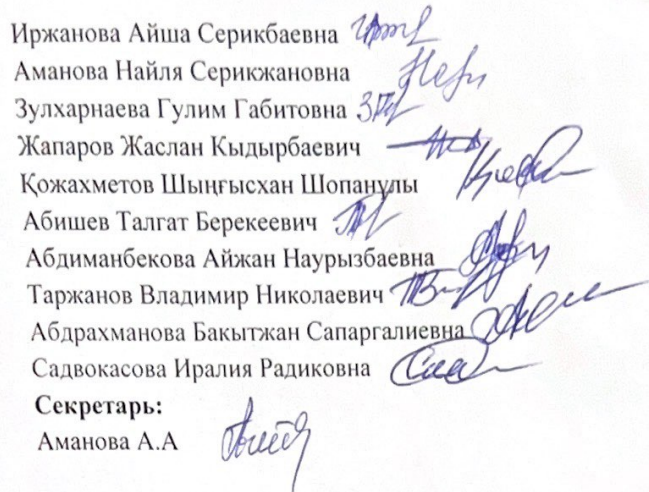 Иржанова Айша Серикбаевна
Аманова Найля Серикжановна
Зулхарнаева Гулим Габитовна
Жапаров Жаслан Кыдырбаевич
Қожахметов Шыңғысхан Шопанұлы
Абишев Талгат Берекеевич
Абдиманбекова Айжан Наурызбаевна
Таржанов Владимир Николаевич
Абдрахманова Бакытжан Сапаргалиевна
Садвокасова Иралия Радиковна
Секретарь:
Аманова А.А